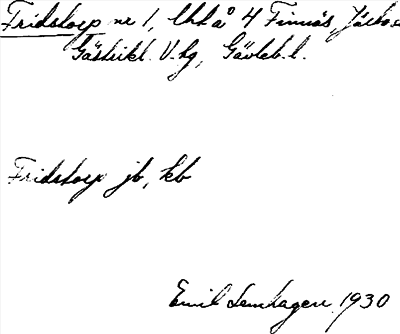 Fridstorp nr 1, lht å 4 Finnäs, Järbo s
Gästrikl. V. hg, Gävleb. l.
Fridstorp jb, kb
Emil Lemhagen 1930